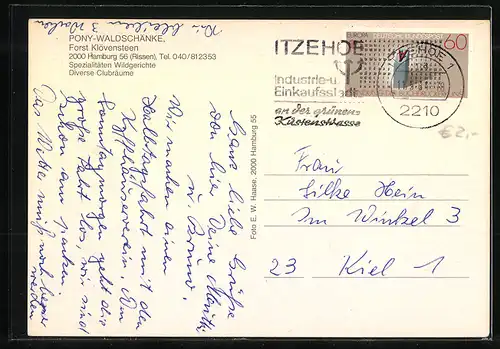 PONY-WALDSCHÄNKE,
Forst Klövensteen
2000 Hamburg 56 (Rissen), Tel. 040/812353
Spezialitäten Wildgerichte
Diverse Clubräume
Ganz liebe Grüße
von hier Deine Mutti
u. Bruno.
Wir machen einen
Halbtagsfahrt mit den
Kyffhäuserverein. Am
Sonntagmorgen geht die
große Fahrt los, wir sind
schon am packen.
Das Wetter muß noch besser
werden
3 Wochen
Foto E. W. Haase, 2000 Hamburg 55
ITZEHOE
Industrie-u.
Einkaufsstadt
an der grünen
Küstenstrasse
ITZEHOE 1
2210
EUROPA
DEUTSCHE BUNDESPOST
60
€ 2,-
Frau
Silke Hein
Im Winkel 3
23 Kiel 1